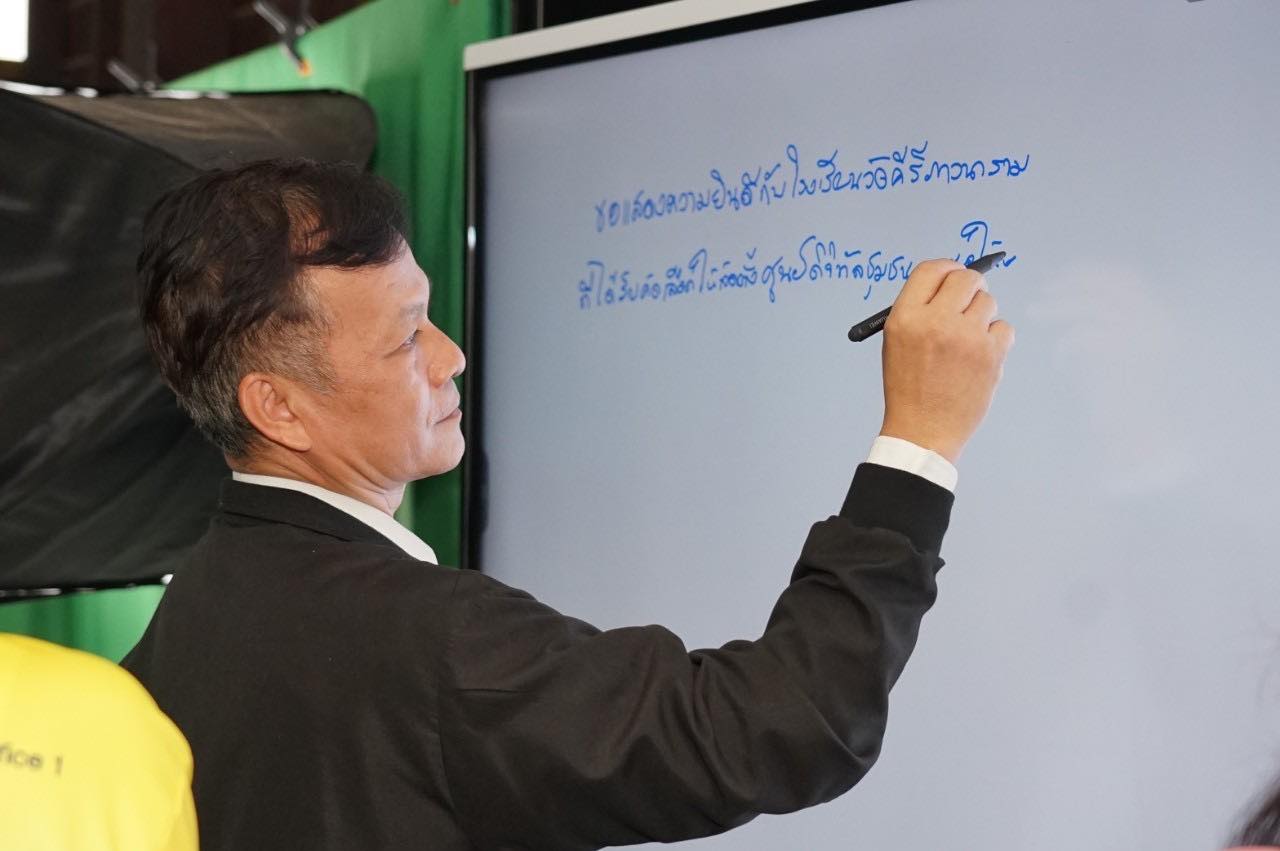 ขอแสดงความยินดีกับโรงเรียนวัดคีรีภาวนาราม
ที่ได้รับคัดเลือกให้จัดตั้งศูนย์ดิจิทัลชุมชน
HUAWEI